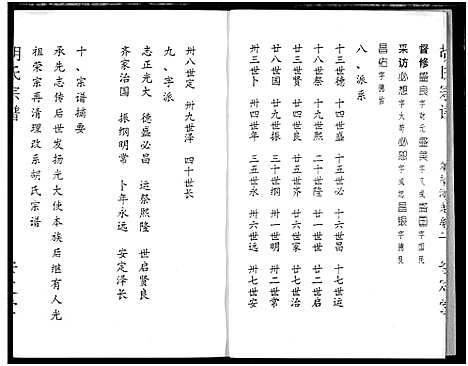 胡氏宗谱
督修 盛良 字财元 盛美 字又成 昌国 字国民
采访 必想 字大奇 必恕 字 昌银 字德良
昌佑 字德管
八、派系
十三世德 十四世盛 十五世必 十六世昌 十七世运
十八世祭 十九世熙 二十世隆 廿一世世 廿二世启
廿三世贤 廿四世良 廿五世齐 廿六世家 廿七世治
廿八世国 廿九世振 卅世纲 卅一世明 卅二世常
卅三世卜 卅四世年 卅五世永 卅六世远 卅七世安
卅八世定 卅九世泽 四十世长
九、字派
志正光大 德盛必昌 运祭熙隆 世启贤良
齐家治国 振纲明常 卜年永远 安定泽长
十、宗谱摘要
承先志传后世发扬光大使本族后继有人光
祖荣宗再清理改系胡氏宗谱
胡氏宗谱
安定堂